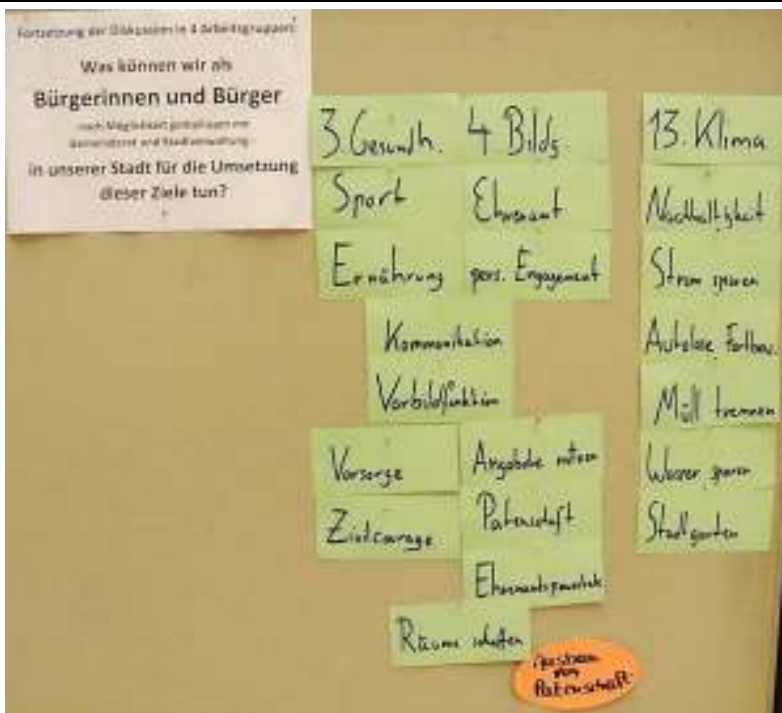 Fortsetzung der Diskussion in 4 Arbeitsgruppen:
Was können wir als
Bürgerinnen und Bürger
nach Möglichkeit gemeinsam mit
Gemeinderat und Stadtverwaltung
in unserer Stadt für die Umsetzung
dieser Ziele tun?
3. Gesundh.
Sport
Ernährung
4 Bildg.
Ehrenamt
pers. Engagement
Kommunikation
Vorbildfunktion
Vorsorge
Zivilcourage
Angebote nutzen
Patenschaft
Ehrenamtspauschale
Räume schaffen
Patenschaft
13. Klima
Nachhaltigkeit
Strom sparen
Autolose Fortbew.
Müll trennen
Wasser sparen
Stadtgarten